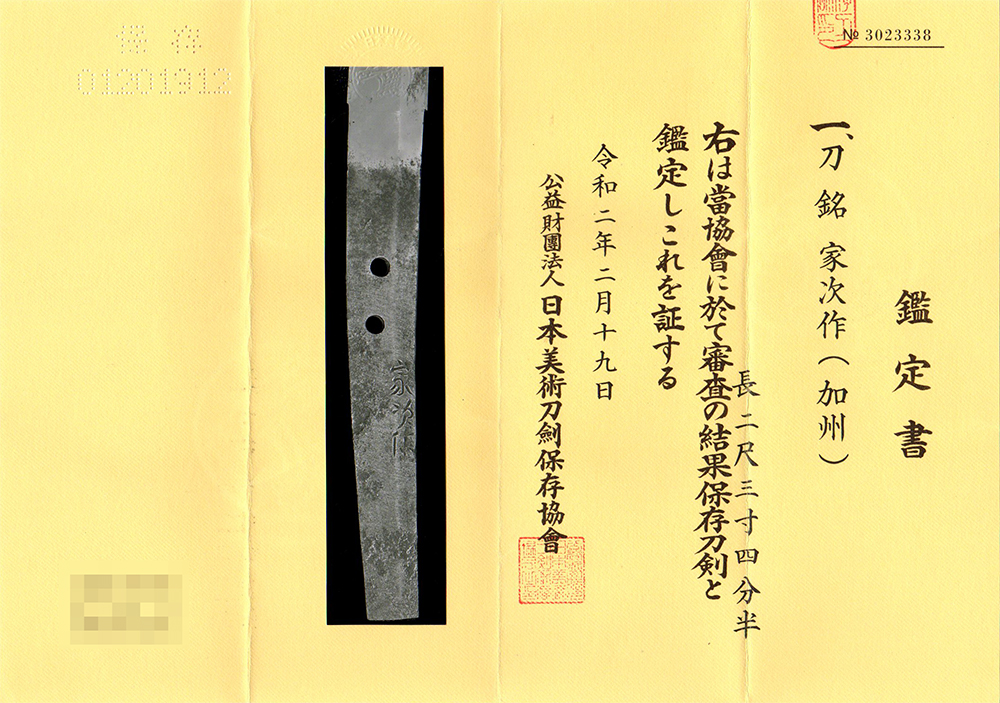 № 3023338
鑑定書
一、刀 銘 家次作（加州）
長二尺三寸四分半
右は當協會に於て審査の結果保存刀剣と
鑑定しこれを証する
令和二年二月十九日
公益財團法人日本美術刀劍保存協會
家次作
保存
01201912